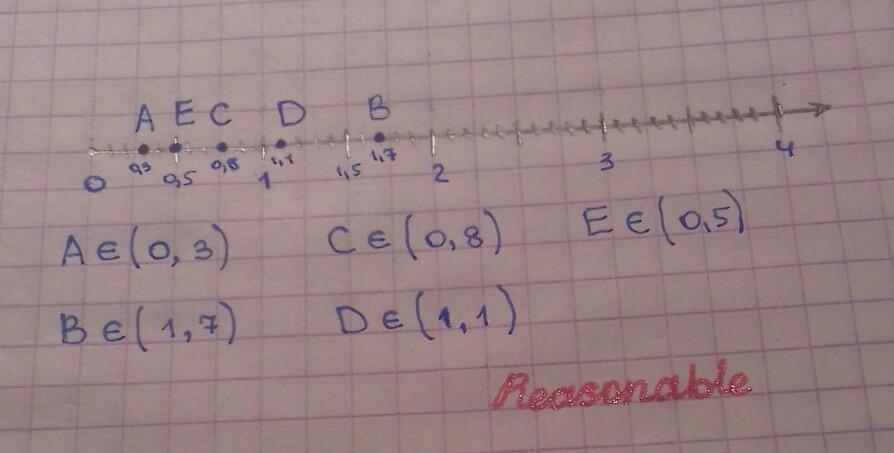 A E C D B
0 0,3 0,5 0,8 1 1,1 1,5 1,7 2 3 4
A ∈ (0, 3) C ∈ (0, 8) E ∈ (0,5)
B ∈ (1,7) D ∈ (1,1)
Reasonable